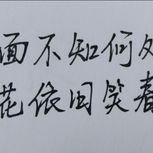 面不知何处
花依旧笑春